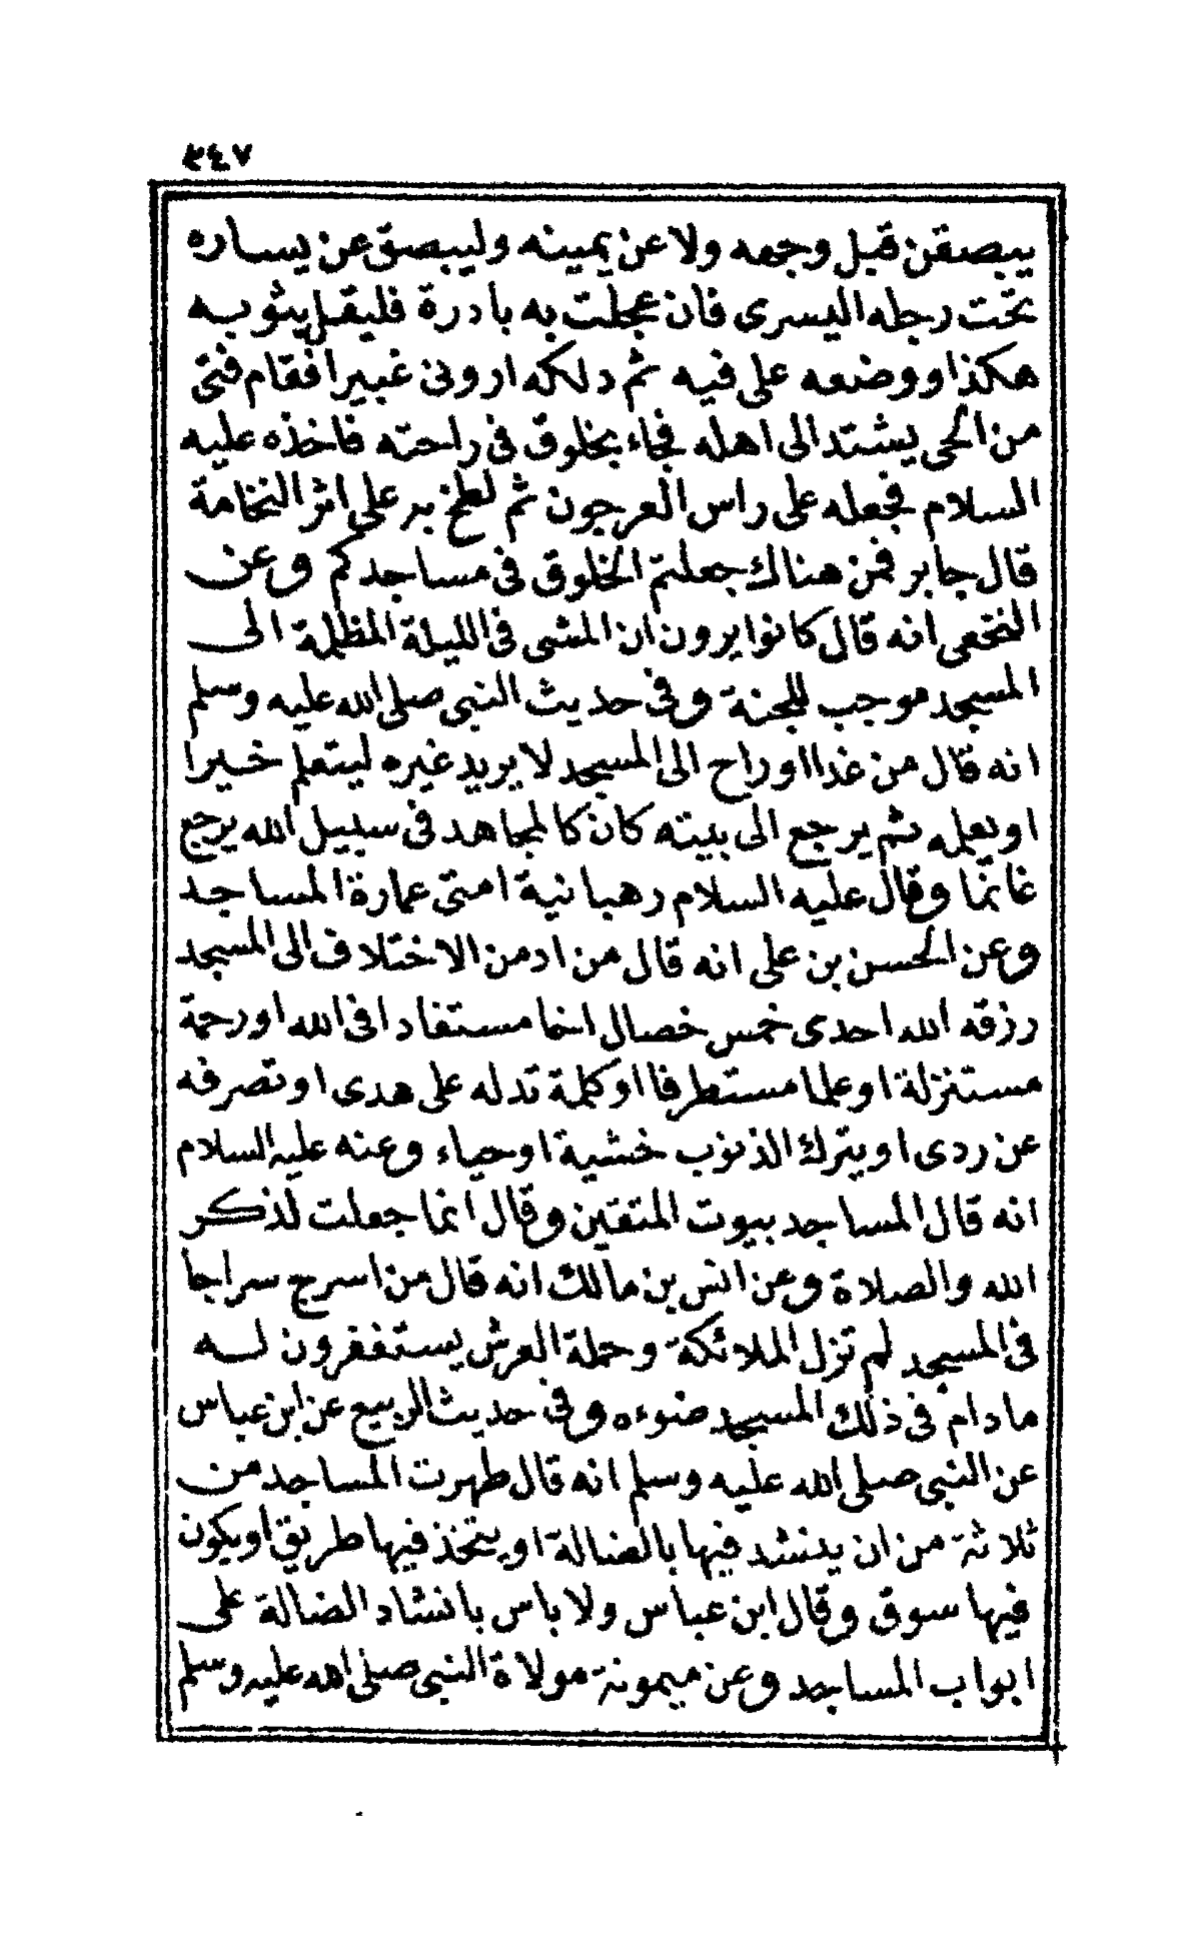 ٣٤٧
يبصقن قبل وجهه ولا عن يمينه وليبصق عن يساره
تحت رجله اليسرى فان عجلت به بادرة فليقل بثوبه
هكذا ووضعه على فيه ثم دلكه ارونى غبيرا فقام فتى
من الحى يشتد الى اهله فجاء بخلوق فى راحته فاخذه عليه
السلام فجعله على راس العرجون ثم لطخ به على اثر النخامة
قال جابر فمن هناك جعلتم الخلوق فى مساجدكم وعن
النخعى انه قال كانوا يرون ان المشى فى الليلة المظلمة الى
المسجد موجب للجنة وفى حديث النبى صلى الله عليه وسلم
انه قال من غدا او راح الى المسجد لا يريد غيره ليتعلم خيرا
او يعلمه ثم يرجع الى بيته كان كالمجاهد فى سبيل الله يرجع
غانما وقال عليه السلام رهبانية امتى عمارة المساجد
وعن الحسن بن على انه قال من ادمن الاختلاف الى المسجد
رزقه الله احدى خمس خصال اخا مستفادا فى الله او رحمة
مستنزلة او علما مستطرفا او كلمة تدله على هدى او تصرفه
عن ردى او يترك الذنوب خشية او حياء وعنه عليه السلام
انه قال المساجد بيوت المتقين وقال انما جعلت لذكر
الله والصلاة وعن انس بن مالك انه قال من اسرج سراجا
فى المسجد لم تزل الملائكة وحملة العرش يستغفرون له
مادام فى ذلك المسجد ضوءه وفى حديث الربيع عن ابن عباس
عن النبى صلى الله عليه وسلم انه قال طهرت المساجد من
ثلاثة من ان ينشد فيها بالضالة او يتخذ فيها طريق او يكون
فيها سوق وقال ابن عباس ولا باس بانشاد الضالة على
ابواب المساجد وعن ميمونة مولاة النبى صلى الله عليه وسلم